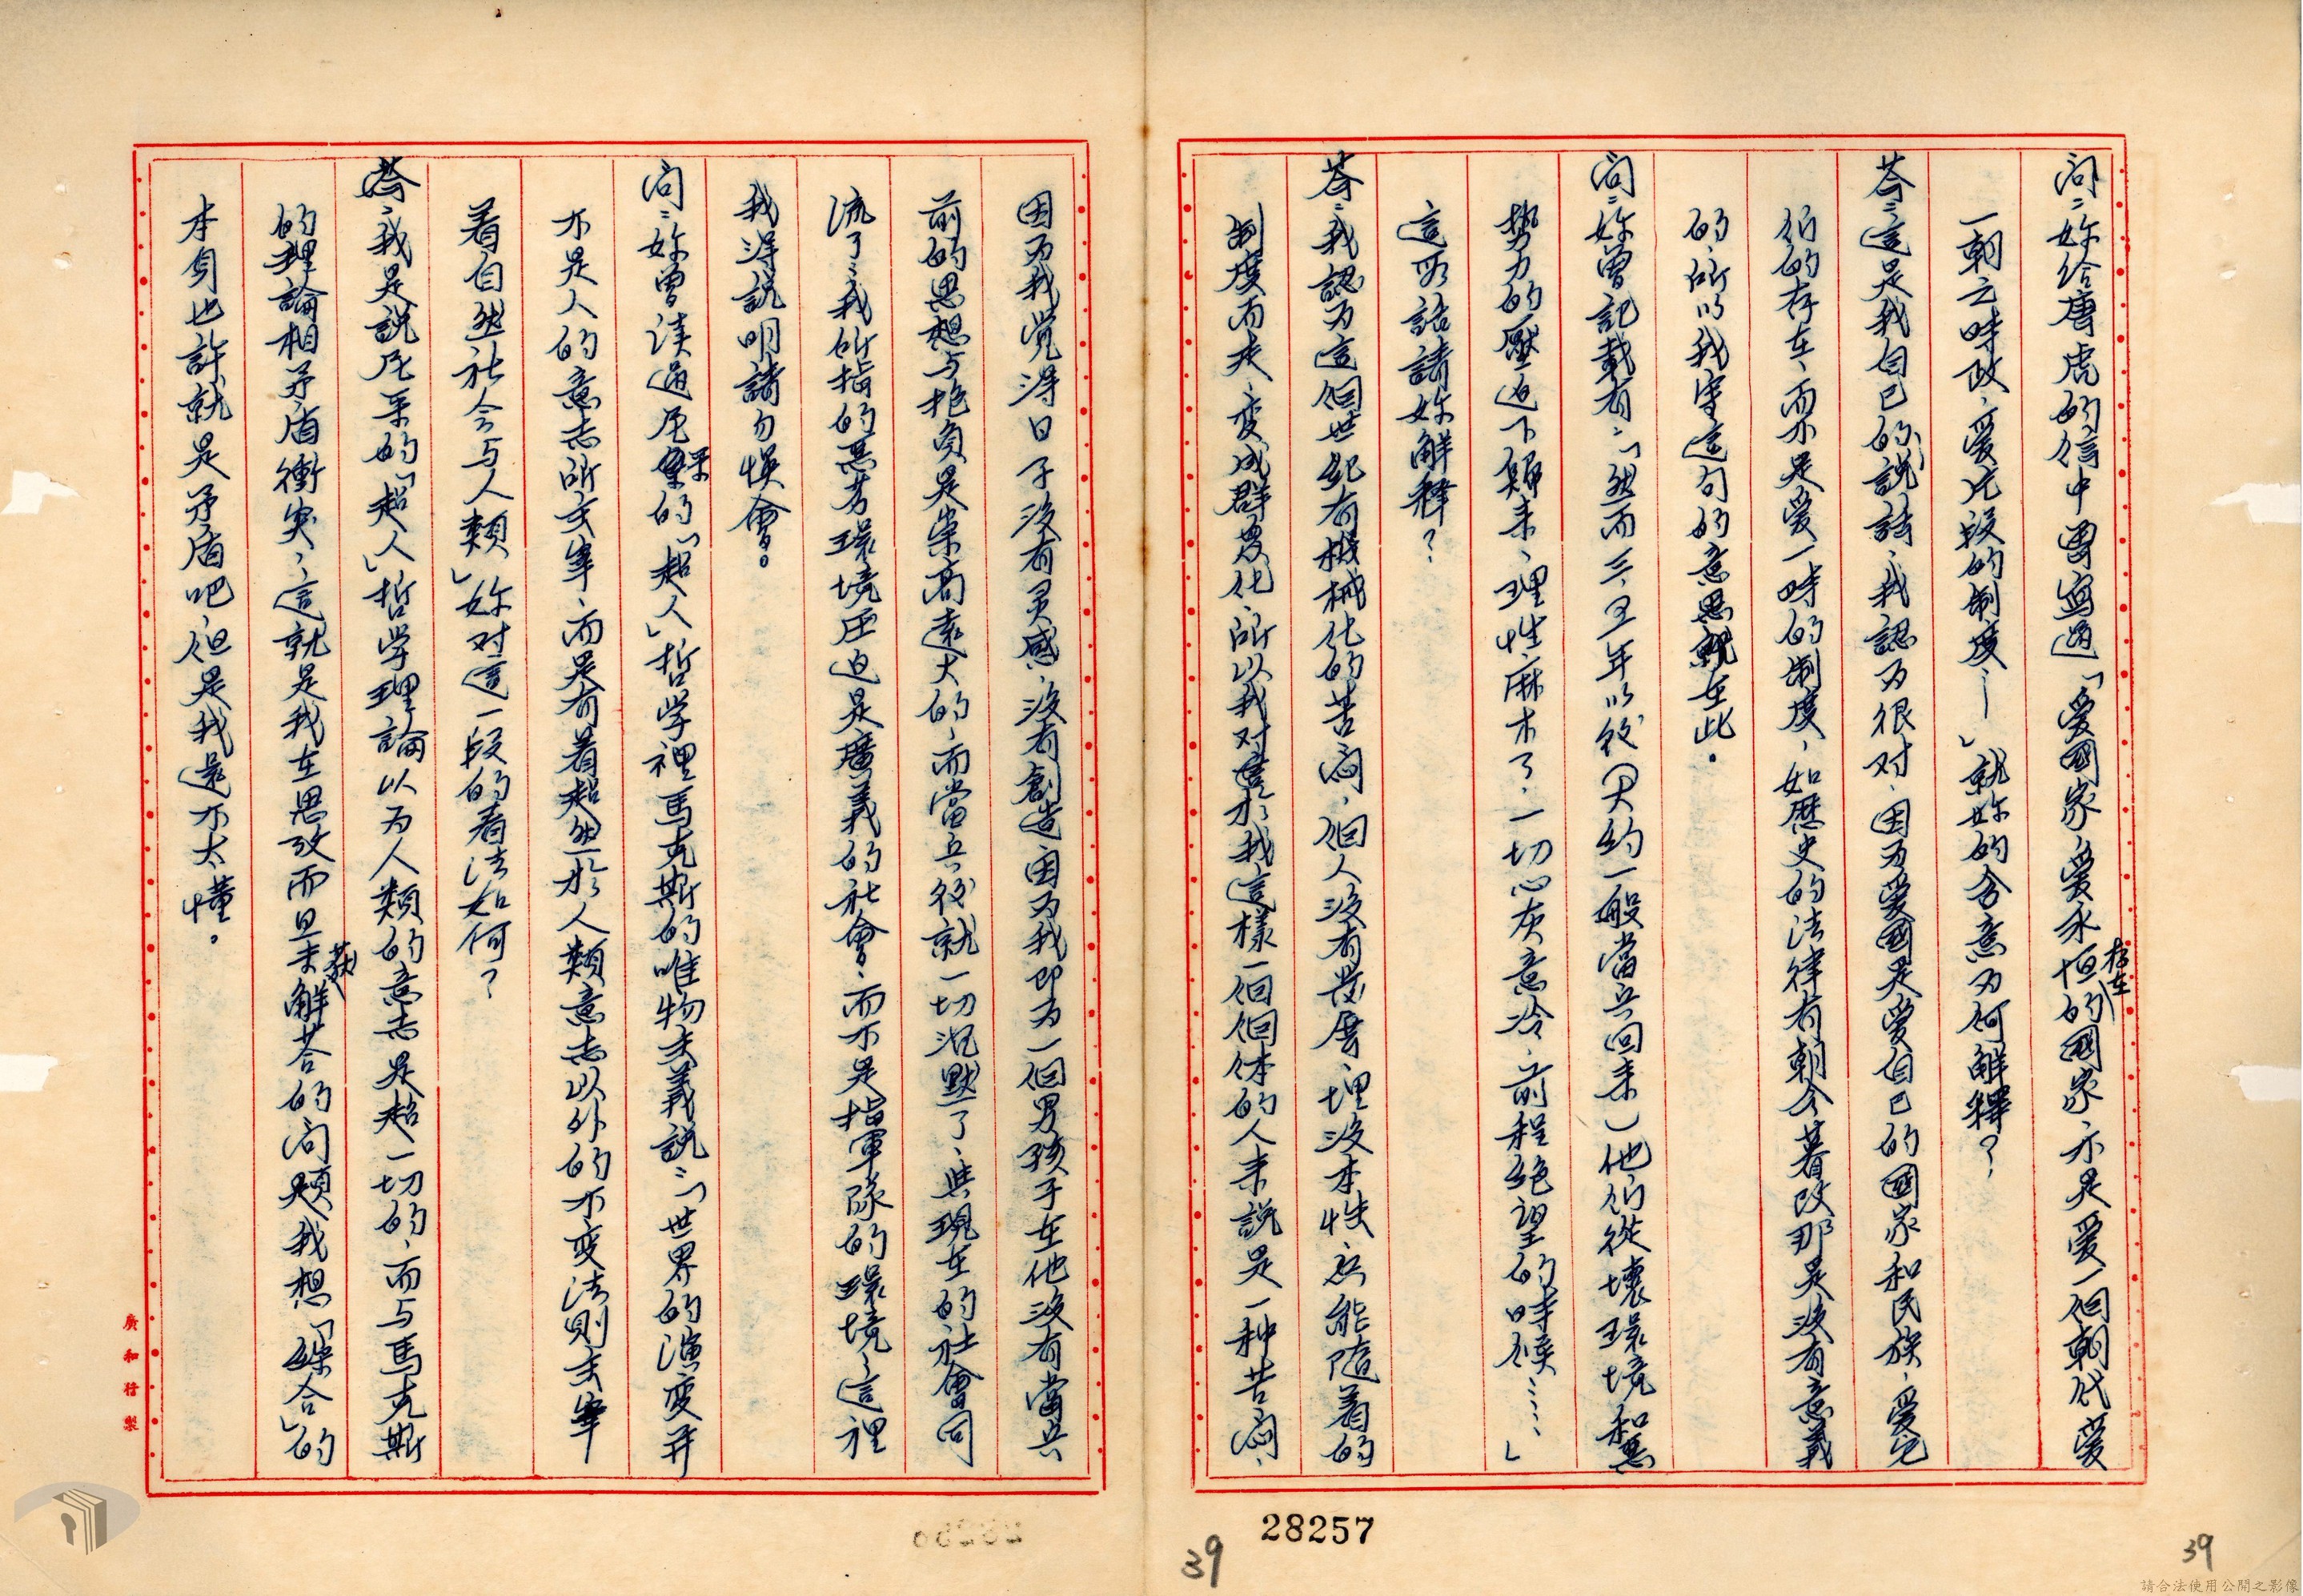 問:妳給唐虎的信中曾寫過「愛國家,愛永恒存在的國家,不是愛一個朝代愛
一朝之時政,愛片段的制度,—」就妳的含意為何解釋?
答:這是我自己的說詩,我認为很对,因为愛國是愛自己的國家和民族,愛它
们的存在,而不是愛一時的制度,如歷史的法律有朝令暮改那是沒有意義
的,所以我寫這句的意思就在此。
問:妳曾記載有:「然而三、五年以後(大約一般當兵回来)他们從壞環境和惡
勢力的壓迫下歸来,理性麻木了,一切心灰意冷,前程絕望的時候……」
這段話請妳解释?
答:我認为這個世紀有機械化的苦悶,個人沒有發展,埋沒本性,只能隨着的
制度而走,变成群眾化,所以我对於我這樣一個個体的人来說是一种苦悶,
因为我覚得日子沒有灵感,沒有創造因为我即为一個男孩子在他沒有當兵
前的思想与抱負是崇高遠大的,而當兵後就一切沉默了,與現在的社會同
流了,我所指的惡劣環境压迫是廣義的社會,而不是指軍隊的環境,這裡
我得說明請勿悞會。
問:妳曾读過尼采的「超人」哲学裡馬克斯的唯物主義說:「世界的演变并
不是人的意志所主宰,而是有着超然於人類意志以外的不变法則主宰
着自然社会与人類」妳对這一段的看法如何?
答:我是說尼采的「超人」哲学理論以为人類的意志是超一切的,而与馬克斯
的理論相矛盾衝突,這就是我在思攷而且未获解答的問題,我想「綜合」的
本身也許就是矛盾吧,但是我還不太懂。
廣和行製
28257
39
39
請合法使用公開之影像